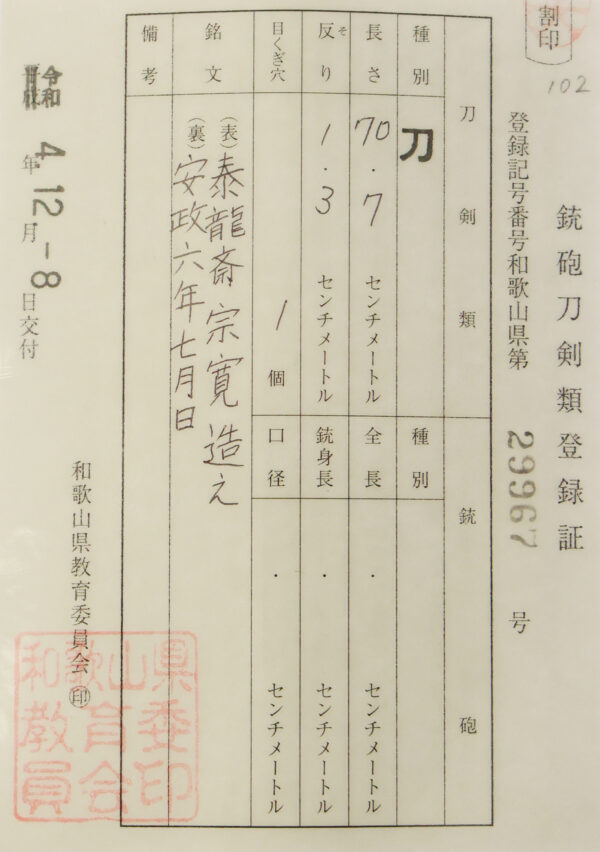 割印
102
銃砲刀剣類登録証
登録記号番号和歌山県第 29967 号
刀剣類
銃砲
種別 刀
長さ 70.7 センチメートル
反り 1.3 センチメートル
そ
目くぎ穴 1 個
種別
全長 ・ センチメートル
銃身長 ・ センチメートル
口径 ・ センチメートル
銘文
(表) 泰龍斎宗寛造え
(裏) 安政六年七月日
備考
令和 4年12月-8日交付
和歌山県教育委員会 印
和歌山県
教育委
員会印